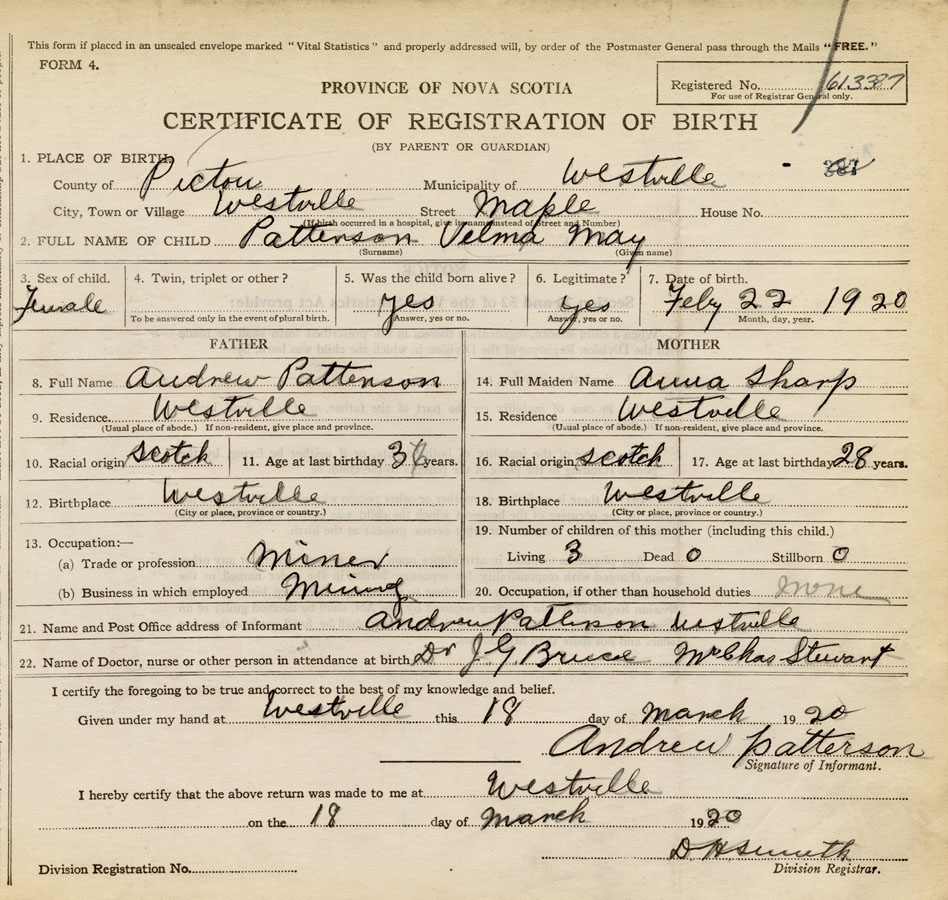 This form if placed in an unsealed envelope marked "Vital Statistics" and properly addressed will, by order of the Postmaster General pass through the Mails "FREE."
FORM 4.
Registered No. 613387
For use of Registrar General only.
PROVINCE OF NOVA SCOTIA
CERTIFICATE OF REGISTRATION OF BIRTH
(BY PARENT OR GUARDIAN)
1. PLACE OF BIRTH
County of Pictou Municipality of Westville
City, Town or Village Westville Street Maple House No.
(If birth occurred in a hospital, give its name instead of Street and Number)
2. FULL NAME OF CHILD Patterson Velma May
(Surname) (Given name)
3. Sex of child. 4. Twin, triplet or other? 5. Was the child born alive? 6. Legitimate? 7. Date of birth.
Female yes yes Feby 22 1920
To be answered only in the event of plural birth. Answer, yes or no. Answer, yes or no. Month, day, year.
FATHER MOTHER
8. Full Name Andrew Patterson 14. Full Maiden Name Anna Sharp
9. Residence. Westville 15. Residence Westville
(Usual place of abode.) If non-resident, give place and province. (Usual place of abode.) If non-resident, give place and province.
10. Racial origin Scotch 11. Age at last birthday years. 16. Racial origin Scotch 17. Age at last birthday 28 years.
12. Birthplace Westville 18. Birthplace Westville
(City or place, province or country.) (City or place, province or country.)
19. Number of children of this mother (including this child.)
13. Occupation:—
(a) Trade or profession Miner Living 3 Dead 0 Stillborn 0
(b) Business in which employed Mining 20. Occupation, if other than household duties None
21. Name and Post Office address of Informant Andrew Patterson Westville
22. Name of Doctor, nurse or other person in attendance at birth, Dr J. G. Bruce Mrs Chas Stewart
I certify the foregoing to be true and correct to the best of my knowledge and belief.
Given under my hand at Westville this 18 day of March 1920
Andrew Patterson
Signature of Informant.
I hereby certify that the above return was made to me at Westville
on the 18 day of March 1920
D H Smith
Division Registration No. Division Registrar.